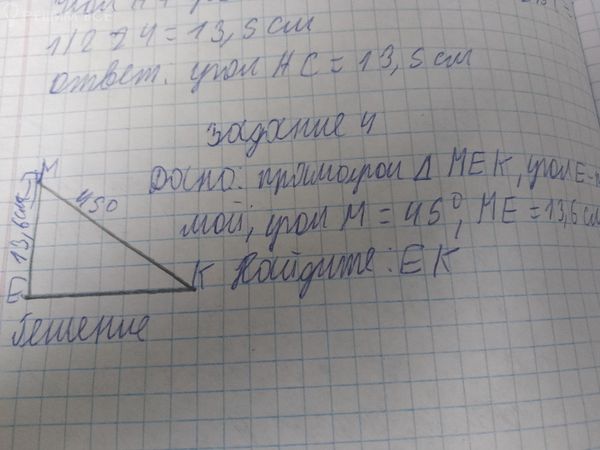 РЕШИМ ВСЕ
1/2 24 = 13,5 см
ответ. угол НС = 13,5 см
Задание 4
Дано: прямоугол Δ МЕК, угол Е-п
мой, угол М = 45°, МЕ = 13,6 см
Найдите: ЕК
М
450
13,6 см
Е
К
Решение